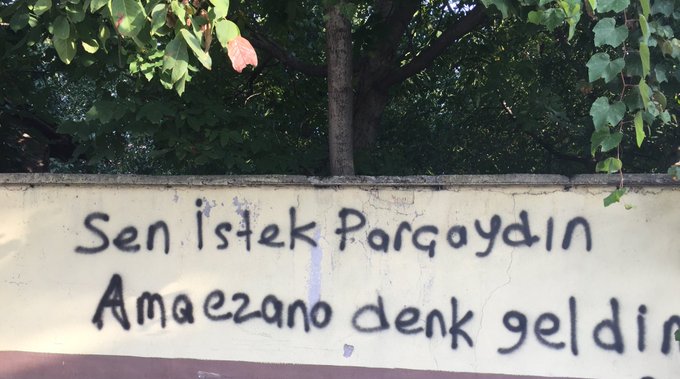 Sen istek Parçaydın
Ama ezana denk geldin